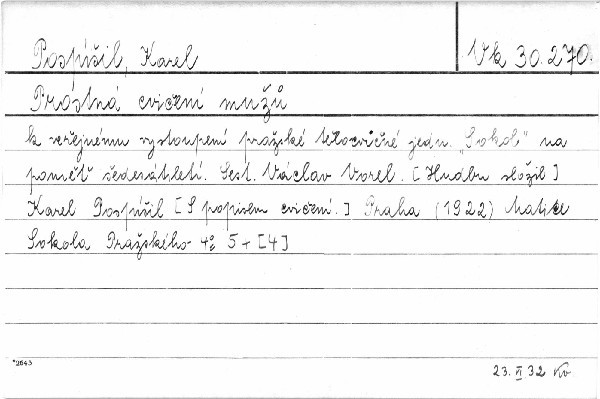 Pospíšil, Karel Vk 30.270.
Prostná cvičení mužů
k veřejnému vystoupení pražské tělocvičné jedn. „Sokol" na
paměť šedesátiletí. Sest. Václav Vorel. [Hudbu složil]
Karel Pospíšil [S popisem cvičení.] Praha (1922) Matice
Sokola Pražského 4° 5 + [4]
*2643
23. VI 32 Kv